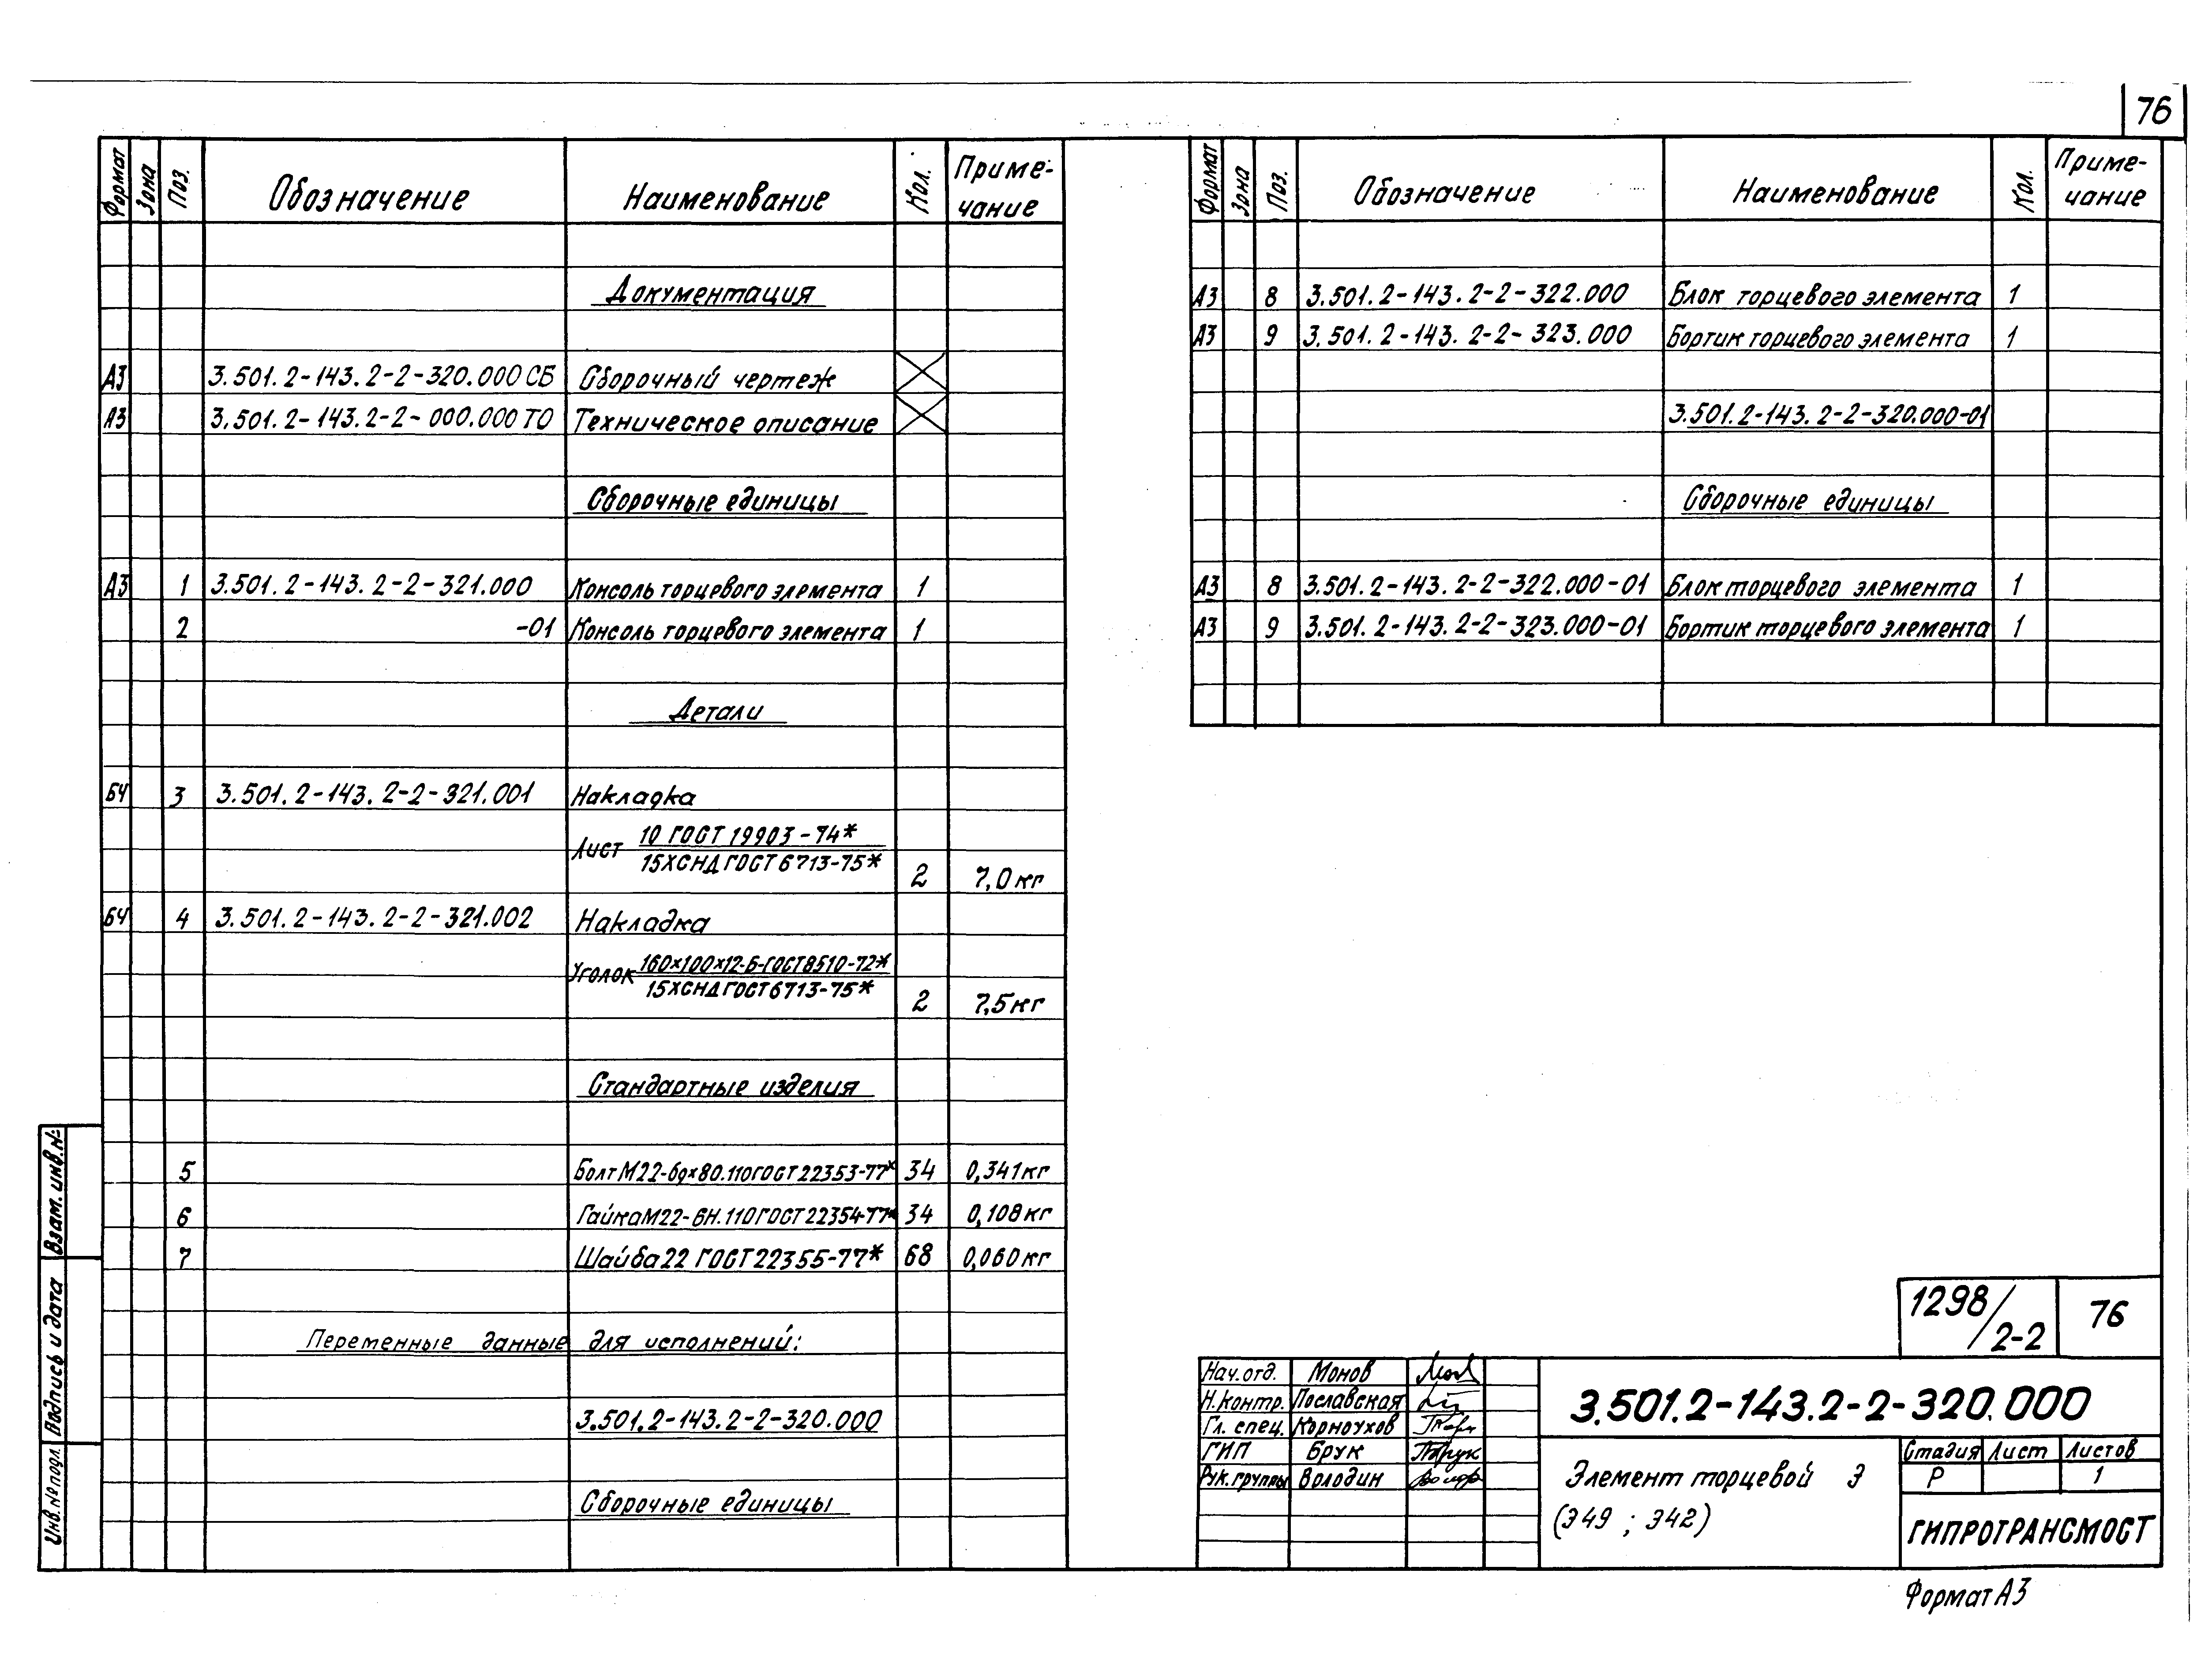 76
Формат Зона Поз. Обозначение Наименование Кол. Приме-
чание
Документация
А3 3.501.2-143.2-2-320.000 СБ Сборочный чертеж
А3 3.501.2-143.2-2-000.000 ТО Техническое описание
Сборочные единицы
А3 1 3.501.2-143.2-2-321.000 Консоль торцевого элемента 1
2 -01 Консоль торцевого элемента 1
Детали
БЧ 3 3.501.2-143.2-2-321.001 Накладка
Лист 10 ГОСТ 19903-74*
15ХСНД ГОСТ 6713-75*
2 7,0 кг
БЧ 4 3.501.2-143.2-2-321.002 Накладка
Уголок 160×100×12-Б-ГОСТ 8510-72*
15ХСНД ГОСТ 6713-75*
2 7,5 кг
Стандартные изделия
5 Болт М22-6g×80.110 ГОСТ 22353-77* 34 0,341 кг
6 Гайка М22-6Н.110 ГОСТ 22354-77* 34 0,108 кг
7 Шайба 22 ГОСТ 22355-77* 68 0,060 кг
Переменные данные для исполнений:
3.501.2-143.2-2-320.000
Сборочные единицы
Формат Зона Поз. Обозначение Наименование Кол. Приме-
чание
А3 8 3.501.2-143.2-2-322.000 Блок торцевого элемента 1
А3 9 3.501.2-143.2-2-323.000 Бортик торцевого элемента 1
3.501.2-143.2-2-320.000-01
Сборочные единицы
А3 8 3.501.2-143.2-2-322.000-01 Блок торцевого элемента 1
А3 9 3.501.2-143.2-2-323.000-01 Бортик торцевого элемента 1
Взам. инв.№
Подпись и дата
Инв.№ подл.
1298/2-2 76
Нач.отд. Монов
Н.контр. Пославская
Гл. спец. Корноухов
ГИП Брук
Рук.группы Володин
3.501.2-143.2-2-320.000
Элемент торцевой Э
(Э49 ; Э42)
Стадия Лист Листов
Р 1
ГИПРОТРАНСМОСТ
Формат А3